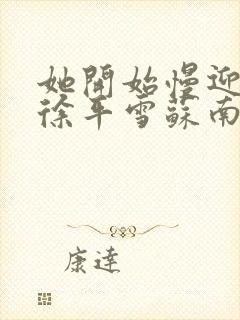 她開始慢迎
徐平雪蘇南
康達